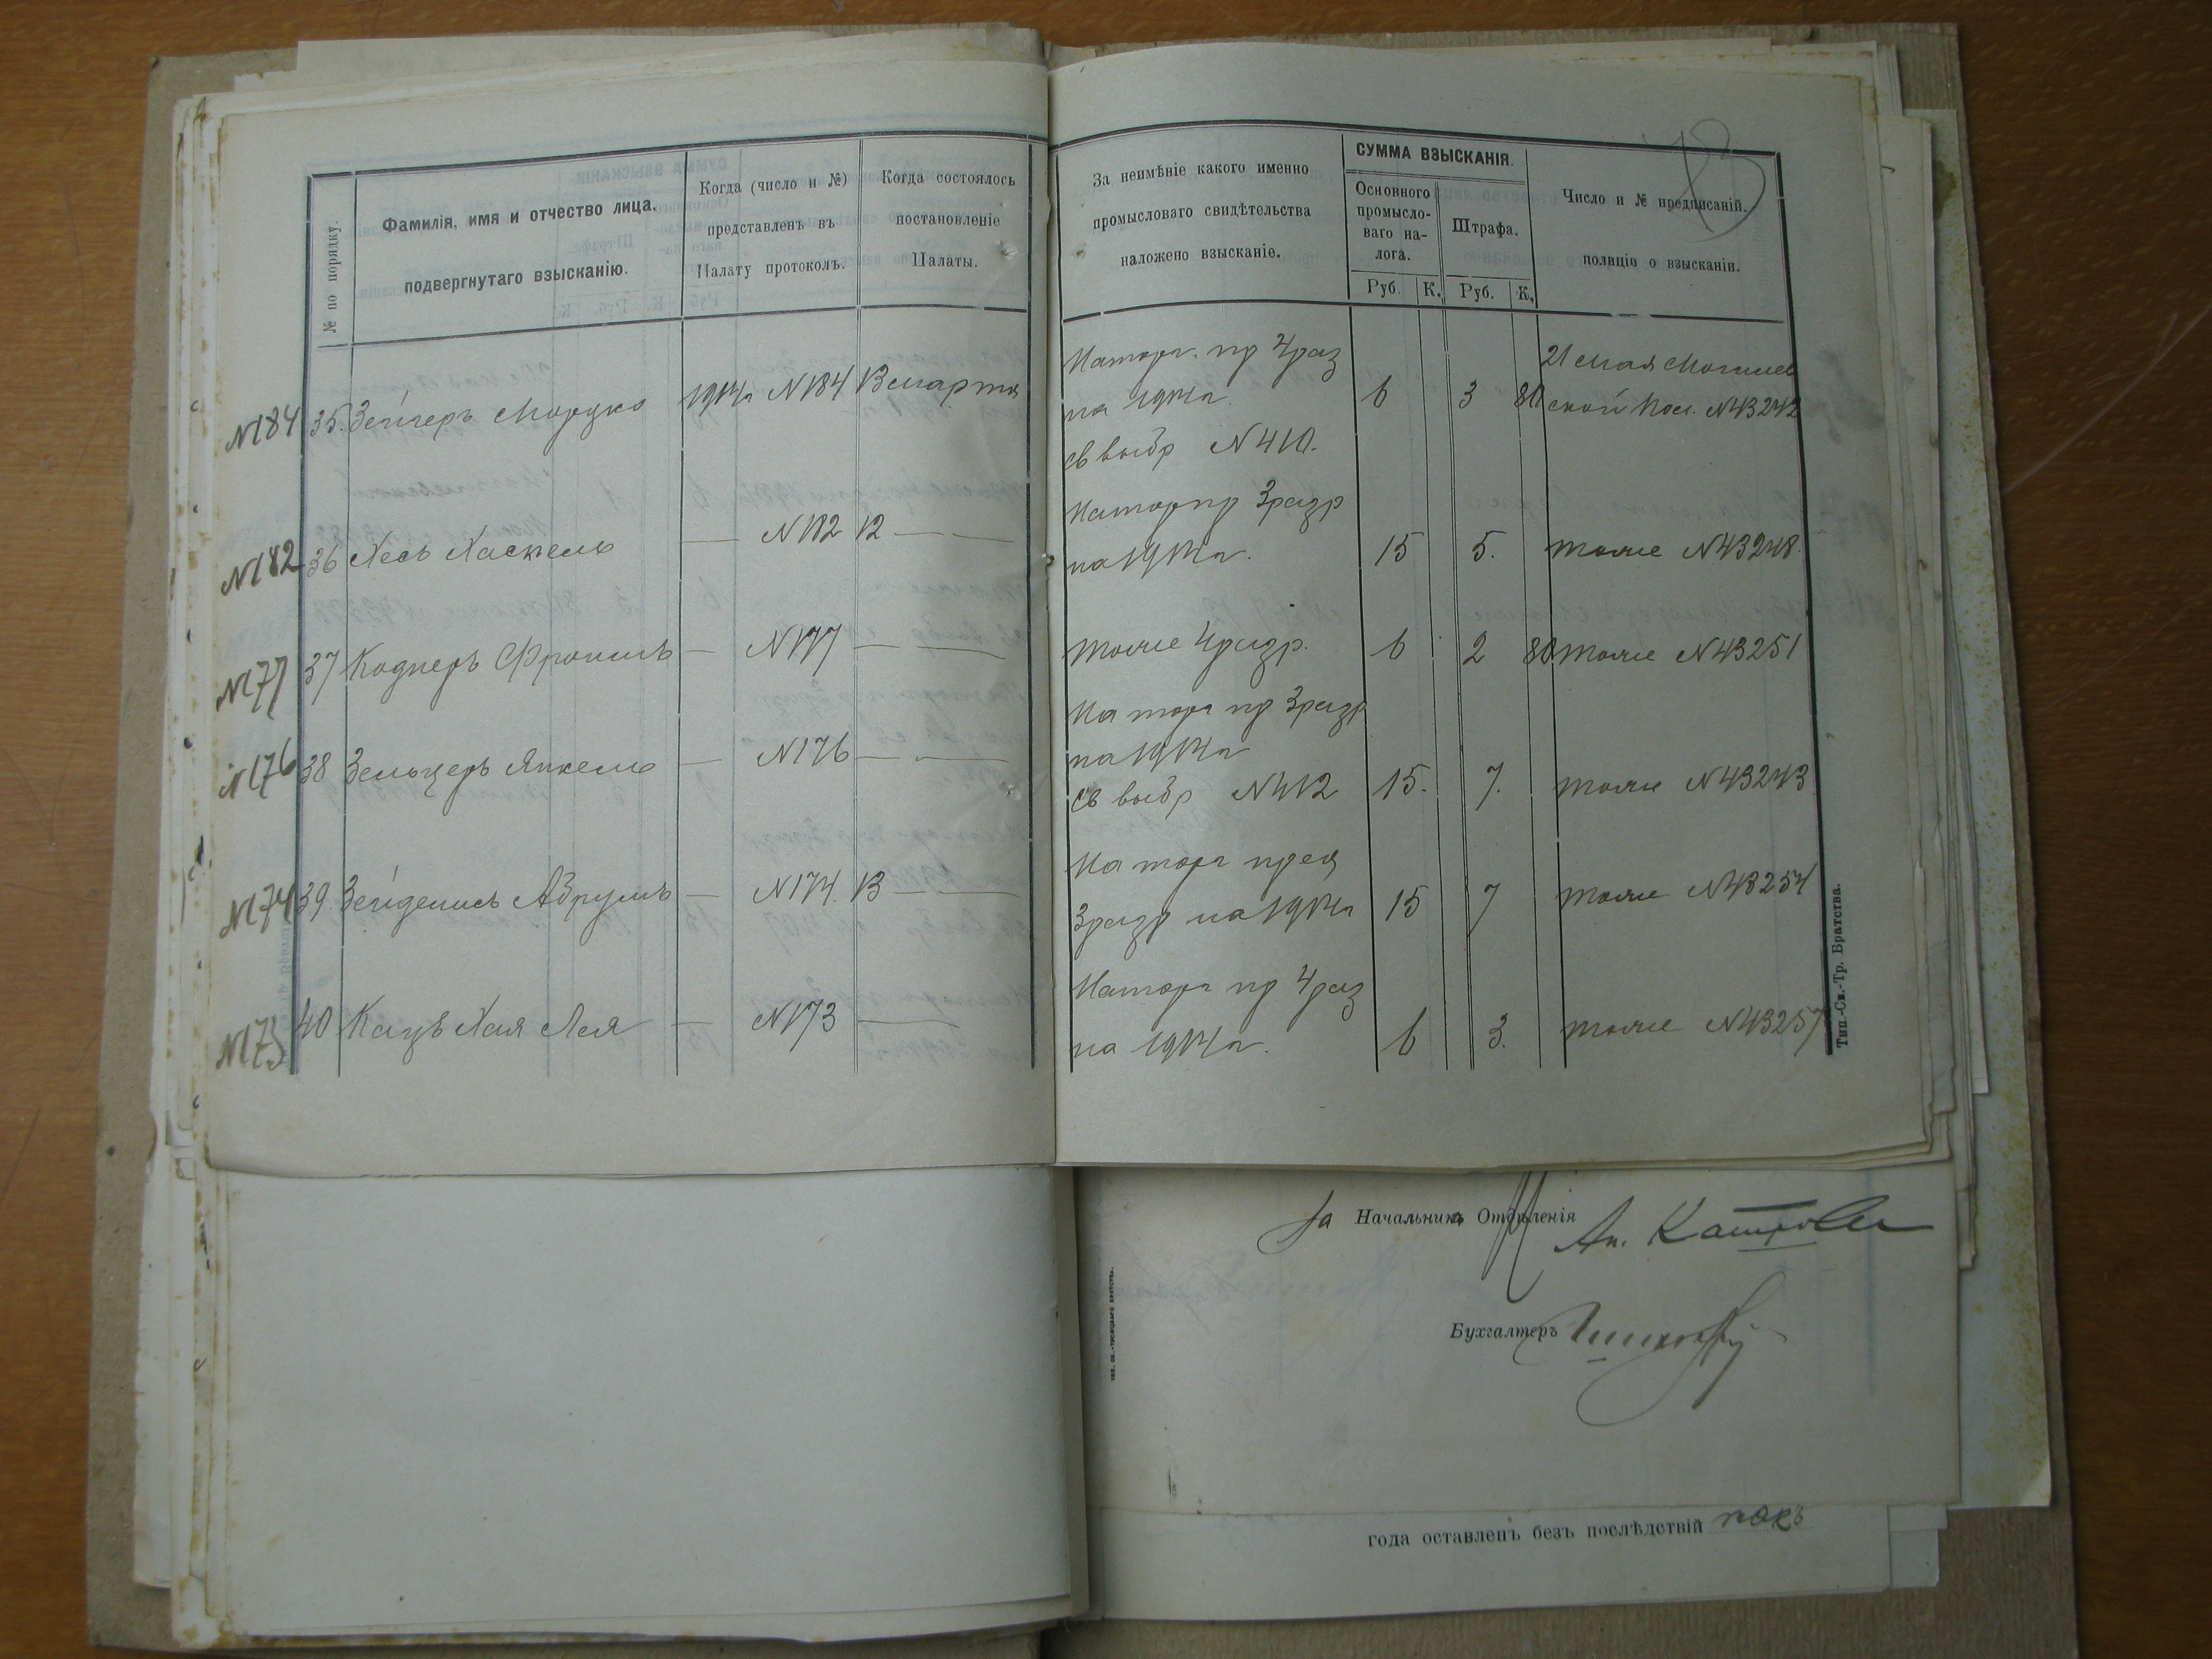 № по порядку.
Фамилія, имя и отчество лица,
подвергнутаго взысканію.
Когда (число и №)
представленъ въ
Палату протоколъ.
Когда состоялось
постановленіе
Палаты.
За неимѣніе какого именно
промысловаго свидѣтельства
наложено взысканіе.
СУММА ВЗЫСКАНІЯ.
Основного
промысло-
ваго на-
лога.
Штрафа.
Руб. К. Руб. К.
Число и № предписаній
полиціи о взысканіи.
На торг. пр 4 раз
21 мая Могилев
№184 35. Зейгеръ Мордко 1914г №184 13 марта на 1914г. 6 3 80 ской Пол. №43242
св выбр №410.
На торг пр 3 разр
№182 36 Хесь Хаскель — №182 12 — — на 1914г. 15 5. тоже №43248.
№177 37 Коднеръ Фроимъ — №177 — — тоже 4 разр. 6 2 80 тоже №43251
На торг пр 3 разр
№176 38 Зельцеръ Янкель — №176 — — на 1914г
св выбр №412 15. 7. тоже №43243
На торг пред
№174 39. Зейденись Абрумъ — №174. 13 — — 3 разр на 1914г 15 7 тоже №43254
На торг пр 4 раз
№173 40 Кацъ Хая Лея — №173 — на 1914г. 6 3. тоже №43257
Тип.-Св.-Тр. Братства.
За Начальника Отдѣленія
Бухгалтеръ
года оставленъ безъ послѣдствій